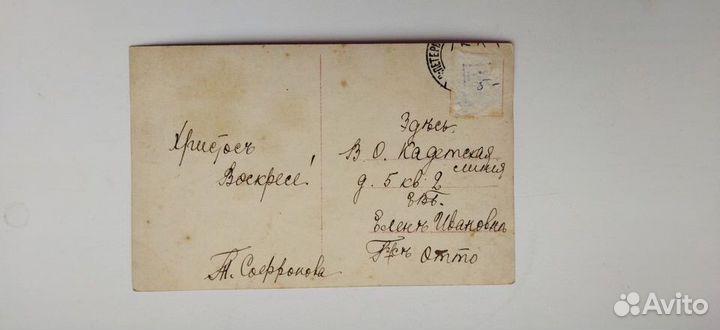 Христосъ
Воскресе!
Т. Соффонова
С.ПЕТЕР
5-
Здѣсь.
В. О. Кадетская
линия
д. 5 кв. 2
Евъ.
Еленѣ Ивановнѣ
Отто
Avito